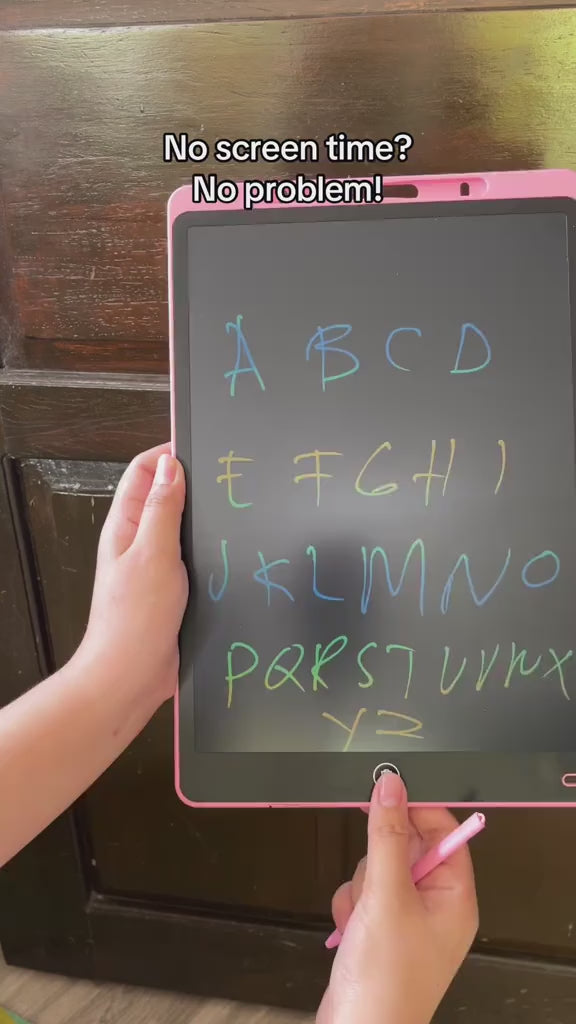 No screen time?
No problem!
A B C D
E F G H I
J K L M N O
P Q R S T U V W X
Y Z